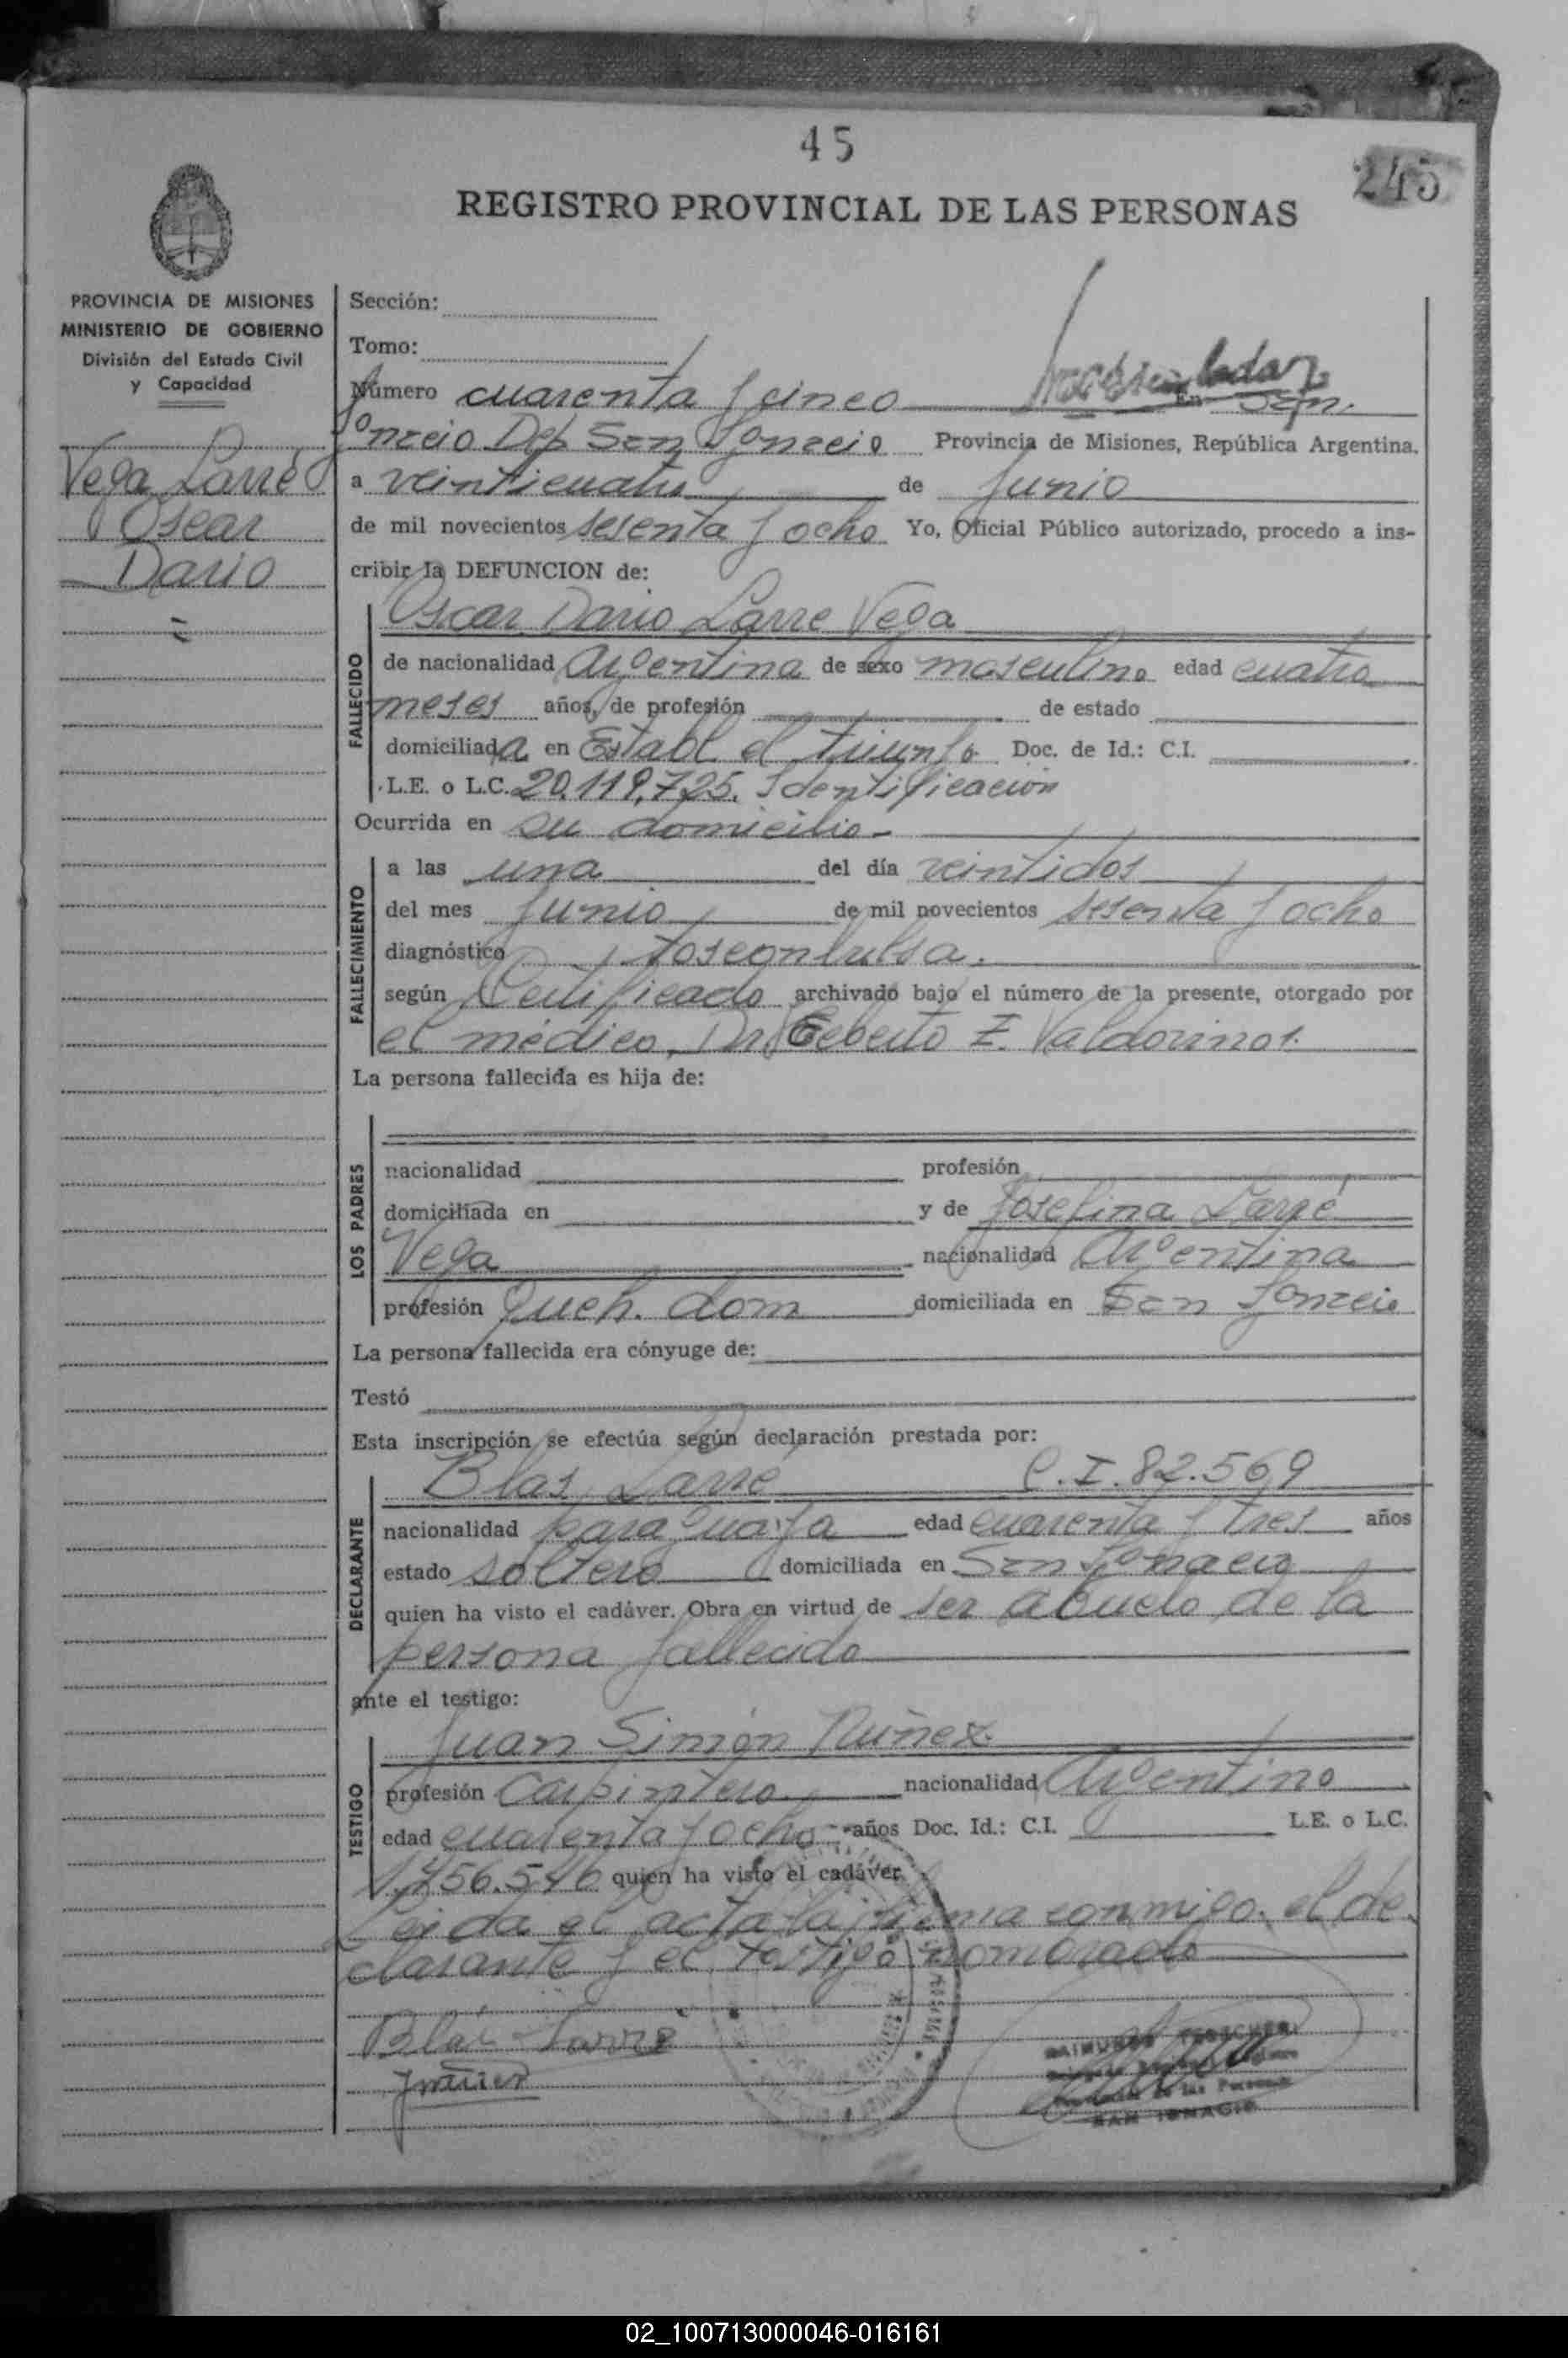 45
245
REGISTRO PROVINCIAL DE LAS PERSONAS
PROVINCIA DE MISIONES
MINISTERIO DE GOBIERNO
División del Estado Civil
y Capacidad
Vega Larré
Oscar
Dario
Sección:
Tomo:
Número cuarenta y cinco En San
Ignacio Dep San Ignacio Provincia de Misiones, República Argentina,
a veinticuatro de Junio
de mil novecientos sesenta y ocho Yo, Oficial Público autorizado, procedo a ins-
cribir la DEFUNCION de:
FALLECIDO
Oscar Dario Larre Vega
de nacionalidad Argentina de sexo masculino edad cuatro
meses años, de profesión de estado
domiciliada en Establ. el triunfo Doc. de Id.: C.I.
L.E. o L.C. 20.119.725. Identificación
Ocurrida en su domicilio
FALLECIMIENTO
a las una del día veintidos
del mes Junio de mil novecientos sesenta y ocho
diagnóstico tosconbulsa.
según Certificado archivado bajo el número de la presente, otorgado por
el médico, Dr. Valdovinos.
La persona fallecida es hija de:
LOS PADRES
nacionalidad profesión
domiciliada en y de Josefina Larré
Vega nacionalidad Argentina
profesión Queh. dom domiciliada en San Ignacio
La persona fallecida era cónyuge de:
Testó
Esta inscripción se efectúa según declaración prestada por:
DECLARANTE
Blas Larré C.I. 82.569
nacionalidad paraguaya edad cuarenta y tres años
estado soltero domiciliada en San Ignacio
quien ha visto el cadáver. Obra en virtud de ser abuelo de la
persona fallecida
ante el testigo:
TESTIGO
Juan Simón Núñez
profesión Carpintero nacionalidad Argentino
edad cuarenta y ocho años Doc. Id.: C.I. L.E. o L.C.
quien ha visto el cadáver.
Leida el acta la firma conmigo, el de
clarante y el testigo nombrado
Blas Larré
SAN IGNACIO
02_100713000046-016161